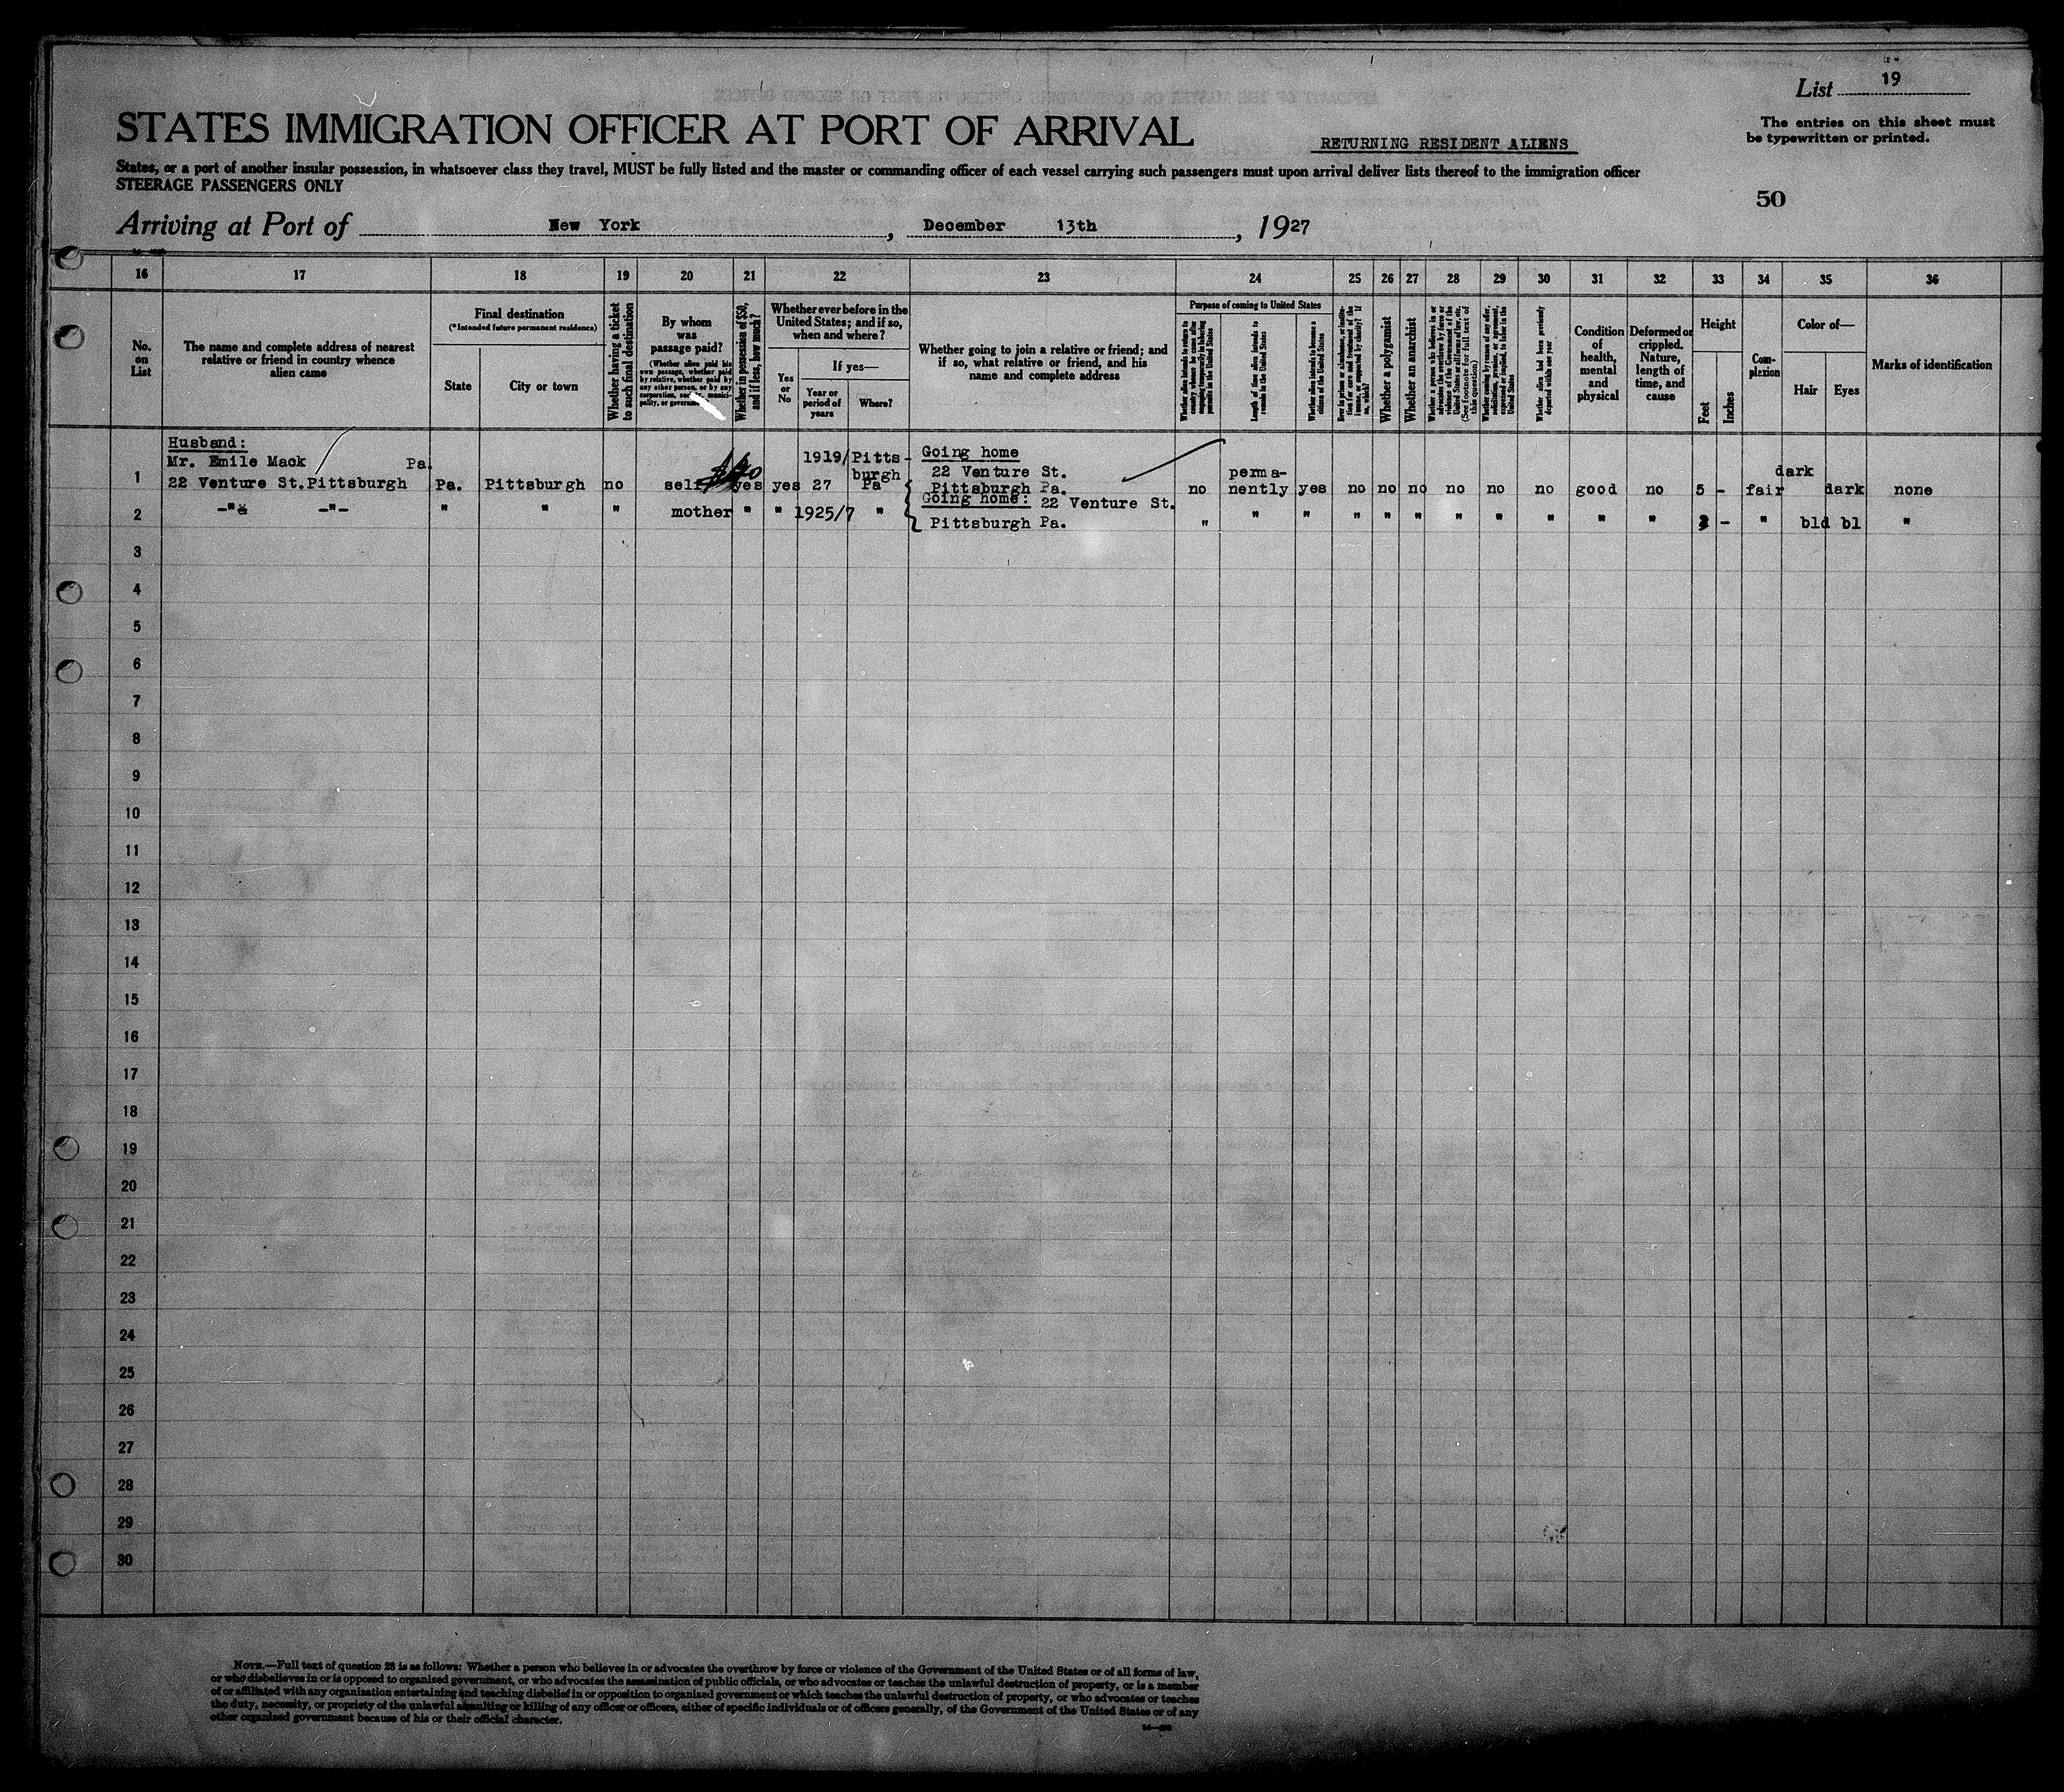 List 19
The entries on this sheet must
be typewritten or printed.
STATES IMMIGRATION OFFICER AT PORT OF ARRIVAL
RETURNING RESIDENT ALIENS
States, or a port of another insular possession, in whatsoever class they travel, MUST be fully listed and the master or commanding officer of each vessel carrying such passengers must upon arrival deliver lists thereof to the immigration officer
STEERAGE PASSENGERS ONLY
50
Arriving at Port of New York, December 13th, 1927
16 17 18 19 20 21 22 23 24 25 26 27 28 29 30 31 32 33 34 35 36
No.
on
List
The name and complete address of nearest
relative or friend in country whence
alien came
Final destination
(*Intended future permanent residence)
State
City or town
Whether having a ticket
to such final destination
By whom
was
passage paid?
(Whether alien paid his
own passage, whether paid
by relative, whether paid by
any other person, or by any
corporation, society, munici-
pality, or government)
Whether in possession of $50,
and if less, how much?
Whether ever before in the
United States; and if so,
when and where?
Yes
or
No
If yes—
Year or
period of
years
Where?
Whether going to join a relative or friend; and
if so, what relative or friend, and his
name and complete address
Purpose of coming to United States
Length of time alien intends to
remain in the United States
Whether alien intends to become a
citizen of the United States
Whether a polygamist
Whether an anarchist
Whether alien had been previously
deported within one year
Condition
of
health,
mental
and
physical
Deformed or
crippled.
Nature,
length of
time, and
cause
Height
Feet
Inches
Com-
plexion
Color of—
Hair
Eyes
Marks of identification
Husband:
Mr. Emile Mack Pa.
1 22 Venture St.Pittsburgh Pa. Pittsburgh no self $40 yes yes 1919/27 Pitts-burgh Pa
Going home
22 Venture St.
Pittsburgh Pa.
no perma-nently yes no no no no no no good no 5 - fair dark dark none
2 -"- -"- " " " mother " " 1925/7 "
Going home: 22 Venture St.
Pittsburgh Pa.
" " " " " " " " " " " - " bld bl "
3
4
5
6
7
8
9
10
11
12
13
14
15
16
17
18
19
20
21
22
23
24
25
26
27
28
29
30
NOTE.—Full text of question 28 is as follows: Whether a person who believes in or advocates the overthrow by force or violence of the Government of the United States or of all forms of law,
or who disbelieves in or is opposed to organized government, or who advocates the assassination of public officials, or who advocates or teaches the unlawful destruction of property, or is a member
of or affiliated with any organization entertaining and teaching disbelief in or opposition to organized government or which teaches the unlawful destruction of property, or who advocates or teaches
the duty, necessity, or propriety of the unlawful assaulting or killing of any officer or officers, either of specific individuals or of officers generally, of the Government of the United States or of any
other organized government because of his or their official character.